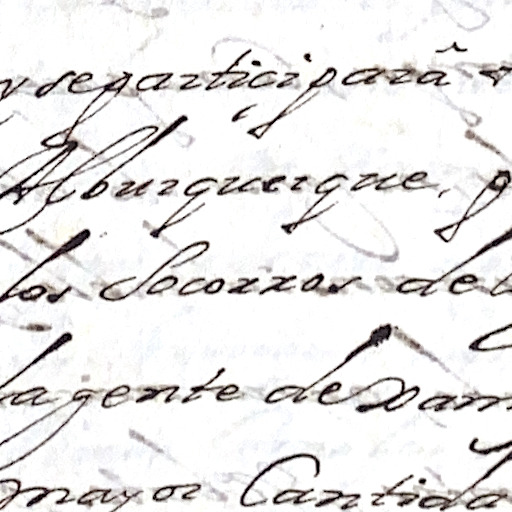 y separticiparâ
Alburquerque, p
los Socorros de
la gente de
mayor Cantida